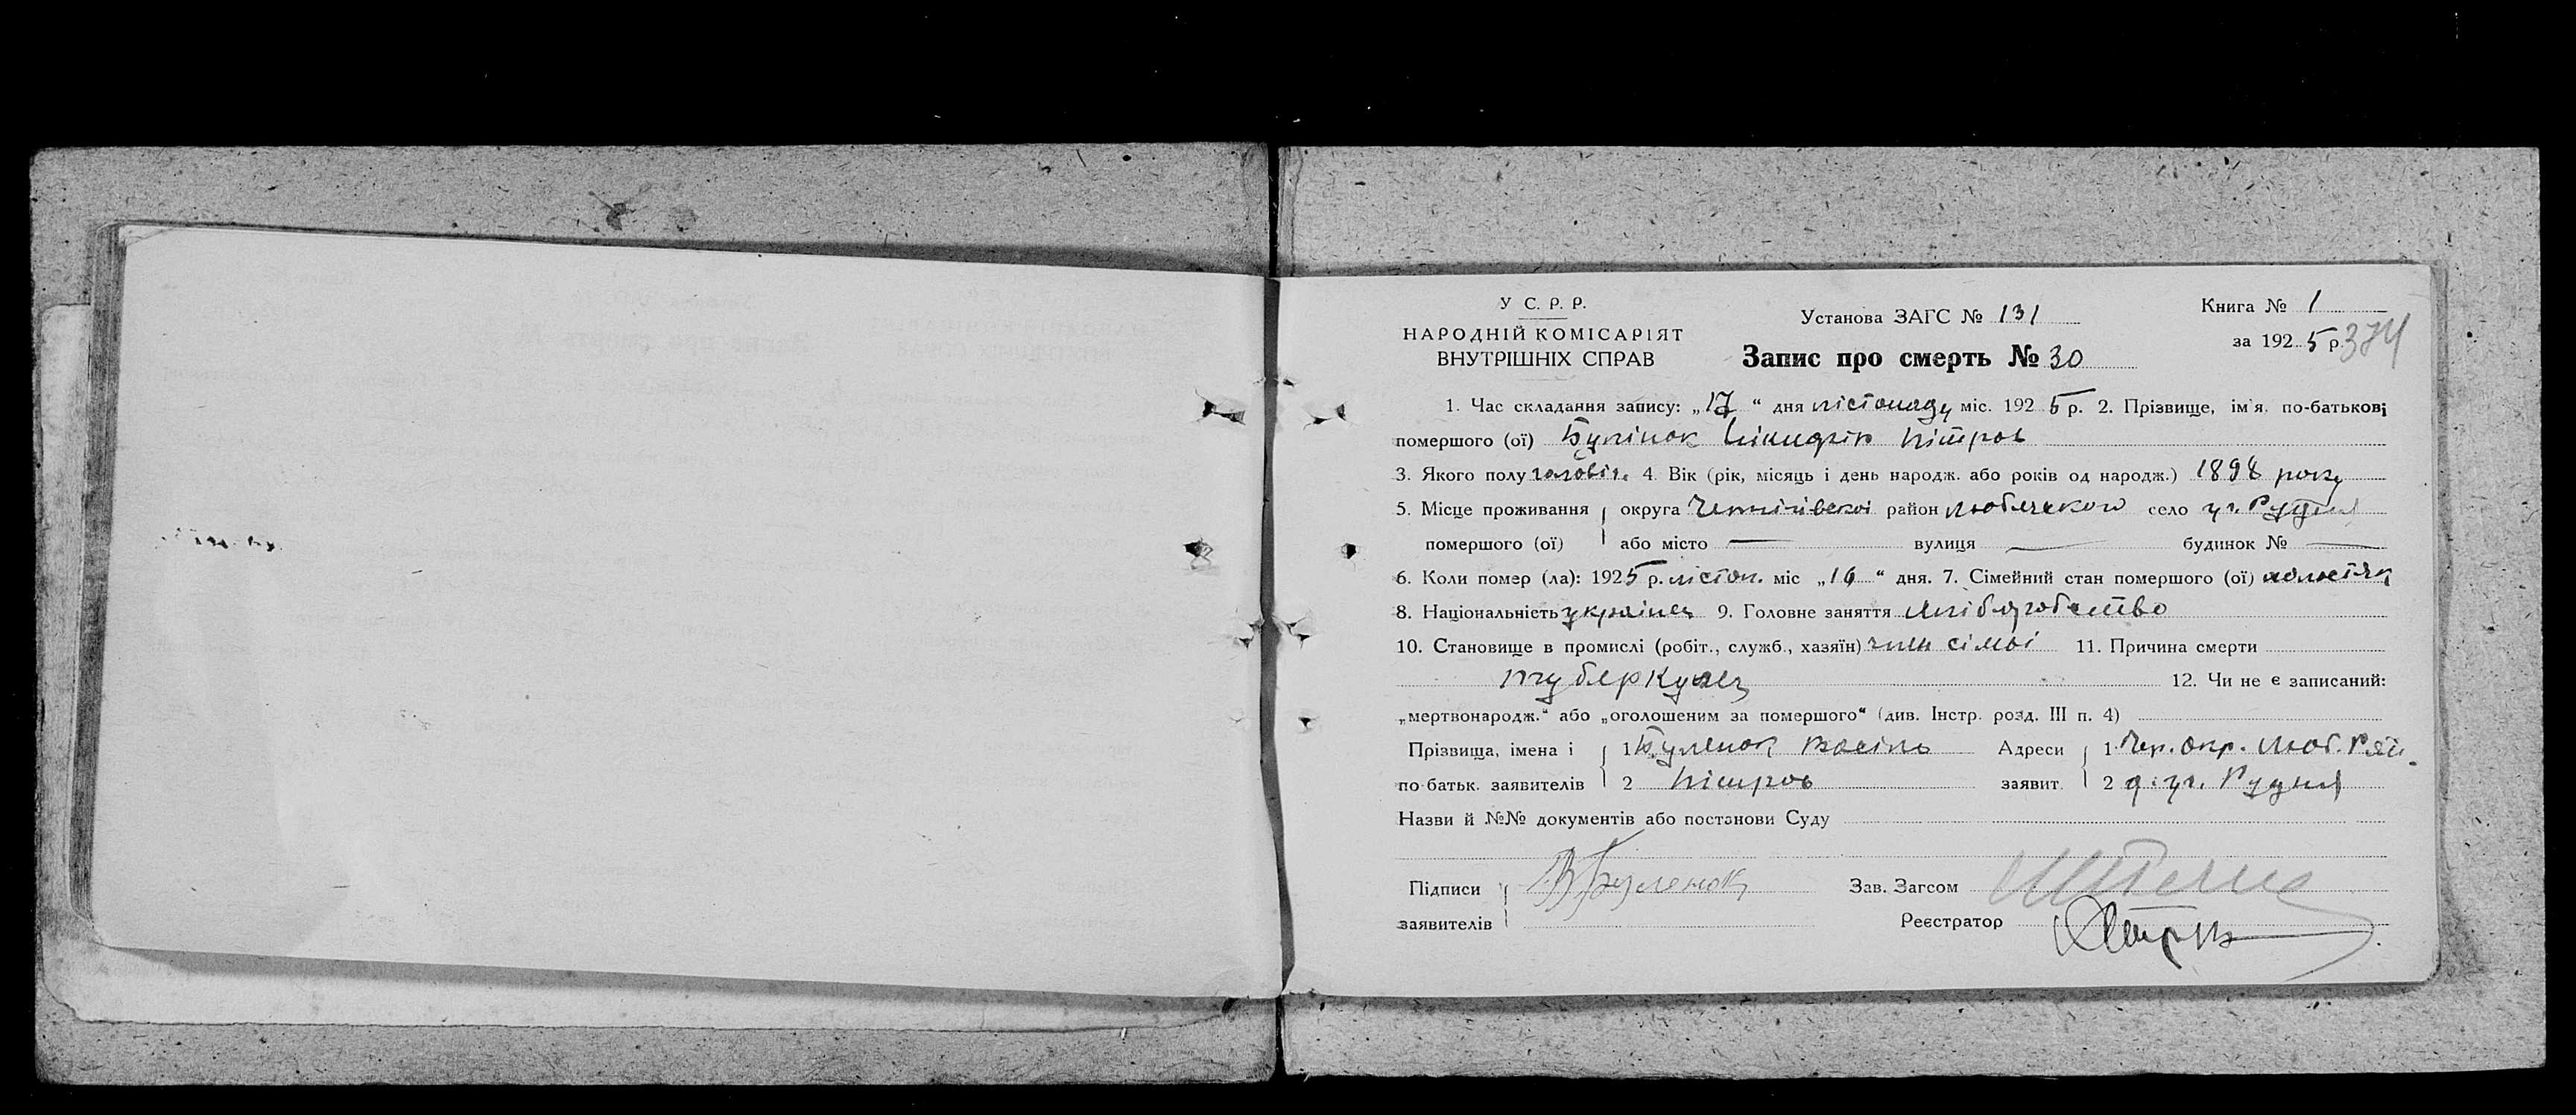 У С. Р. Р.
НАРОДНІЙ КОМІСАРІЯТ
ВНУТРІШНІХ СПРАВ
Установа ЗАГС № 131
Запис про смерть № 30
Книга № 1
за 1925 р.
374
1. Час складання запису: „17“ дня лістопаду міс. 1925 р. 2. Прізвище, ім'я, по-батькові
помершого (ої) Булінок Пітров
3. Якого полу чоловіч. 4. Вік (рік, місяць і день народж. або років од народж.) 1898 року
5. Місце проживання округа Чернігівскоі район Любечского село уч. Рудня
помершого (ої) або місто — вулиця — будинок № —
6. Коли помер (ла): 1925 р. лістоп. міс „16“ дня. 7. Сімейний стан помершого (ої) холостяк
8. Національність українец 9. Головне заняття хліборобство
10. Становище в промислі (робіт., служб., хазяїн) член сімьі 11. Причина смерти
туберкулез 12. Чи не є записаний:
„мертвонародж.“ або „оголошеним за помершого“ (див. Інстр. розд. III п. 4)
Прізвища, імена і 1 Буленок Васіль Адреси 1 Чер. окр. Люб. Рай.
по батьк. заявителів 2 Пітров заявит. 2 д. уч. Рудня
Назви й №№ документів або постанови Суду
Підписи В Буленок Зав. Загсом
заявителів Реєстратор